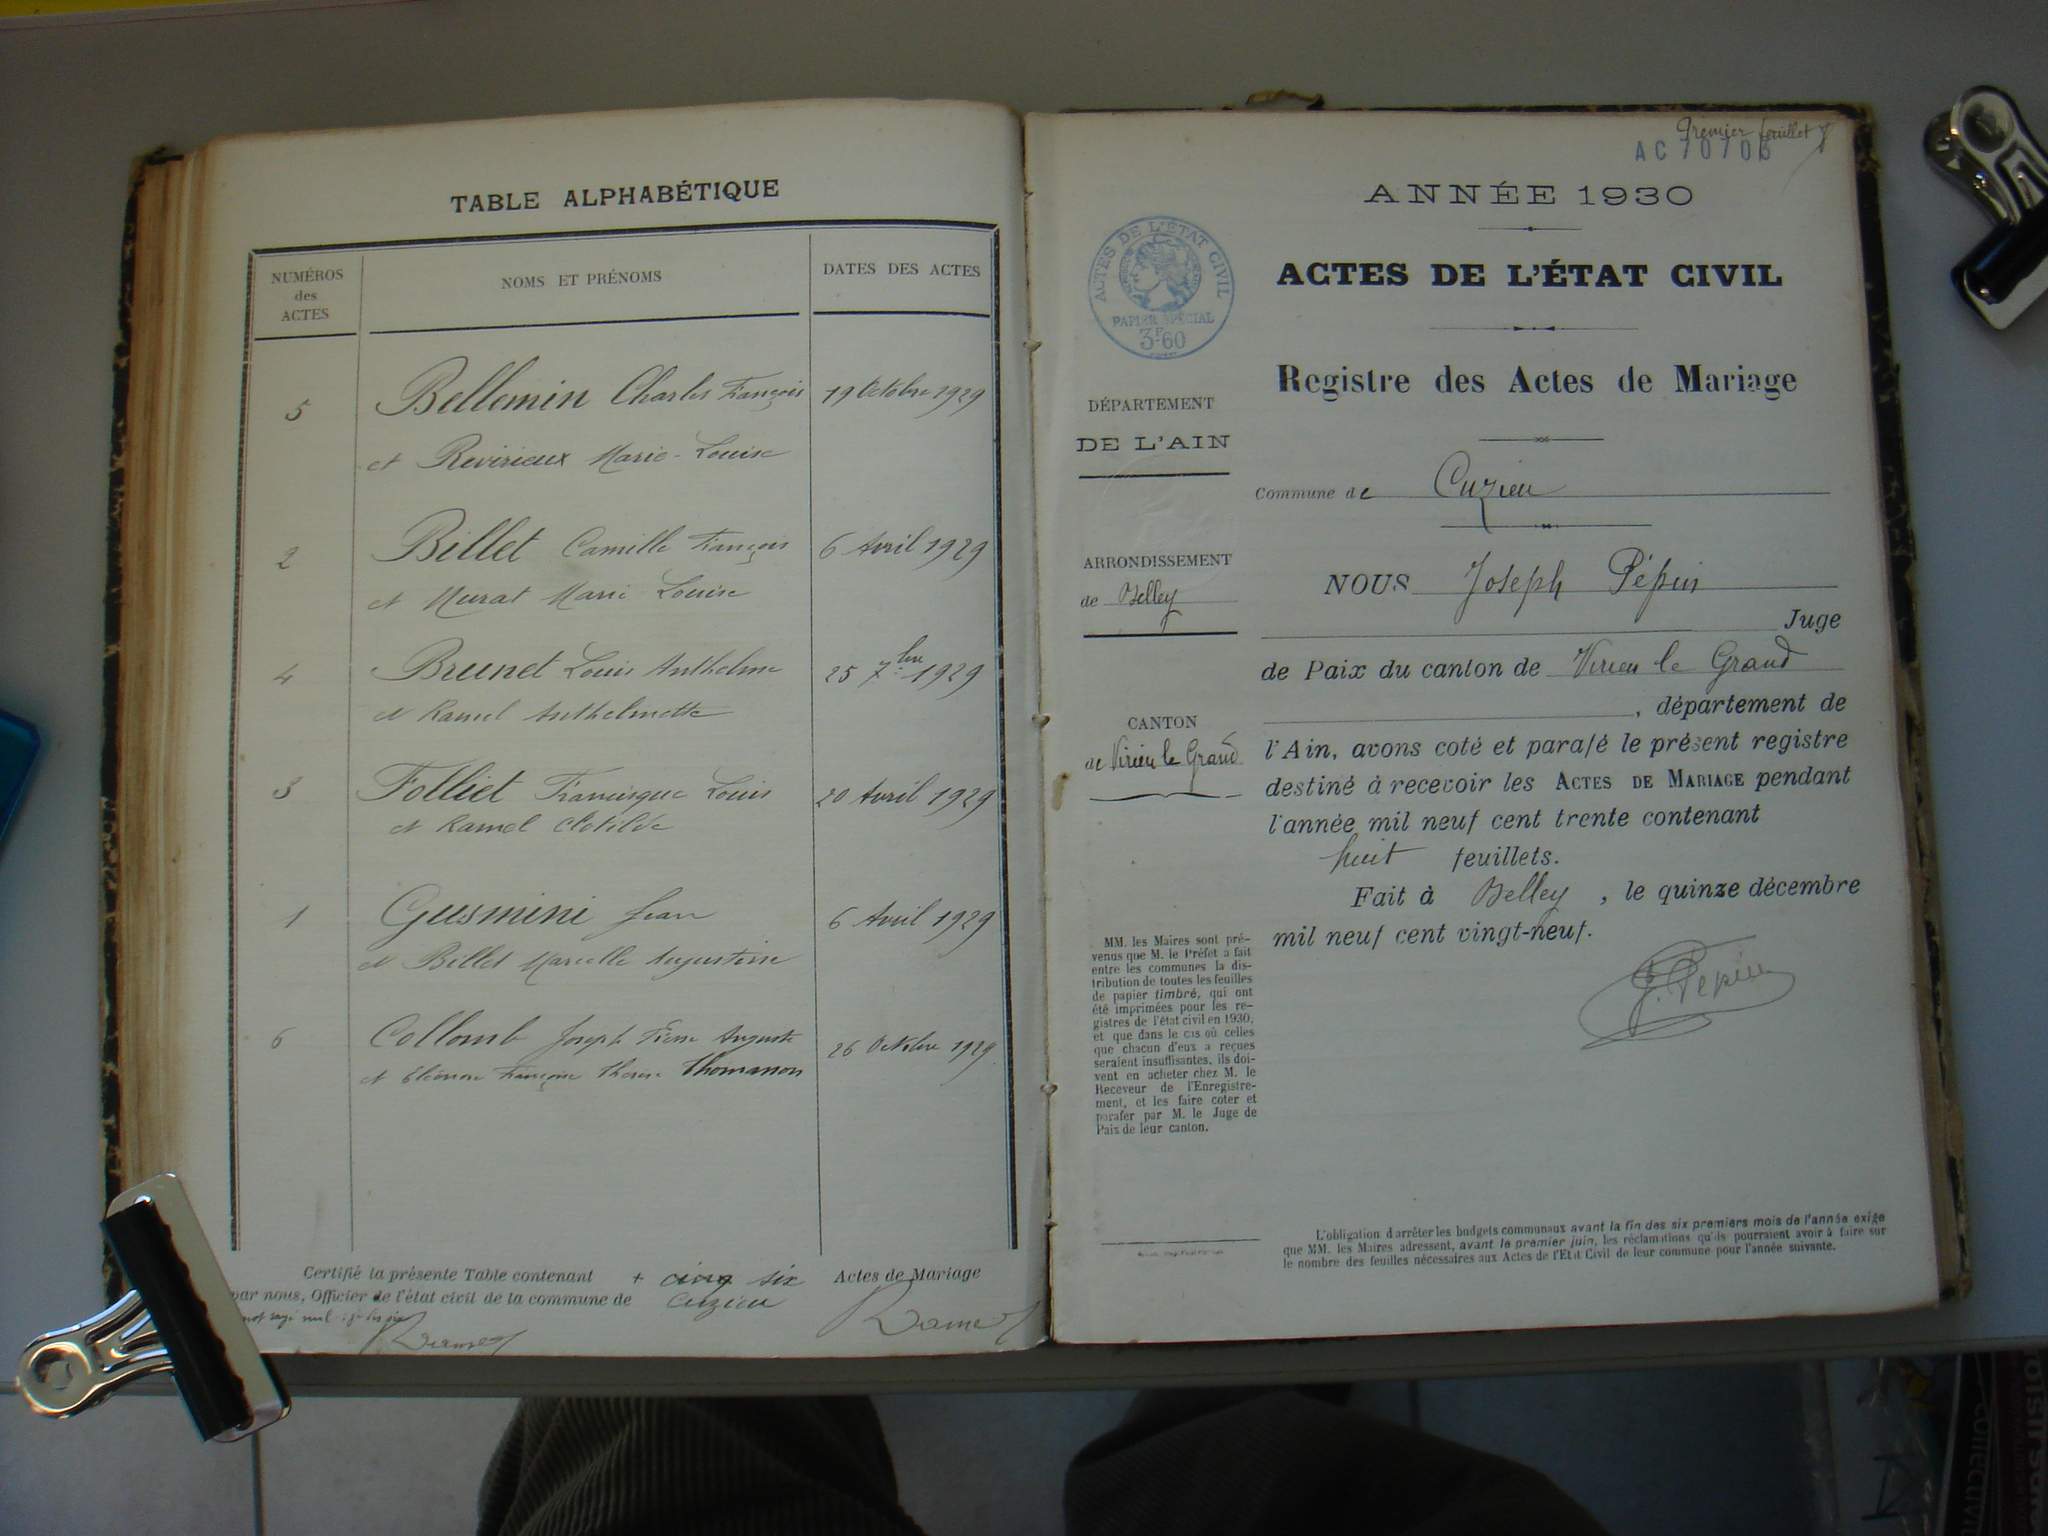 TABLE ALPHABÉTIQUE
NUMÉROS des ACTES
NOMS ET PRÉNOMS
DATES DES ACTES
5 Bellemin Charles François 19 Octobre 1929
et Revirieux Marie-Louise
2 Billet Camille François 6 Avril 1929
et Murat Marie Louise
4 Brunet Louis Anthelme 25 7bre 1929
et Ramel Anthelmette
3 Folliet Francisque Louis 20 Avril 1929
et Ramel Clotilde
1 Gusmini Jean 6 Avril 1929
et Billet Marcelle Augustine
6 Collomb Joseph Pierre Auguste 26 Octobre 1929
et Eléonore Françoise Thérèse Thomasson
Certifié la présente Table contenant + cinq six Actes de Mariage
par nous, Officier de l'état civil de la commune de Cuzieu
Ramel
Premier feuillet
AC 70706
ANNÉE 1930
ACTES DE L'ÉTAT CIVIL
PAPIER SPÉCIAL
3F60
ACTES DE L'ÉTAT CIVIL
Registre des Actes de Mariage
DÉPARTEMENT
DE L'AIN
Commune de Cuzieu
ARRONDISSEMENT
de Belley
CANTON
de Virieu le Grand
NOUS Joseph Pépin
Juge
de Paix du canton de Virieu le Grand
, département de
l'Ain, avons coté et parafé le présent registre
destiné à recevoir les ACTES DE MARIAGE pendant
l'année mil neuf cent trente contenant
huit feuillets.
Fait à Belley, le quinze décembre
mil neuf cent vingt-neuf.
J. Pépin
MM. les Maires sont pré-
venus que M. le Préfet a fait
entre les communes la dis-
tribution de toutes les feuilles
de papier timbré, qui ont
été imprimées pour les re-
gistres de l'état civil en 1930,
et que dans le cas où celles
que chacun d'eux a reçues
seraient insuffisantes, ils doi-
vent en acheter chez M. le
Receveur de l'Enregistre-
ment, et les faire coter et
parafer par M. le Juge de
Paix de leur canton.
L'obligation d'arrêter les budgets communaux avant la fin des six premiers mois de l'année exige
que MM. les Maires adressent, avant le premier juin, les réclamations qu'ils pourraient avoir à faire sur
le nombre des feuilles nécessaires aux Actes de l'Etat Civil de leur commune pour l'année suivante.